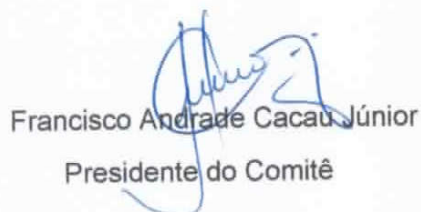 Francisco Andrade Cacau Júnior
Presidente do Comitê